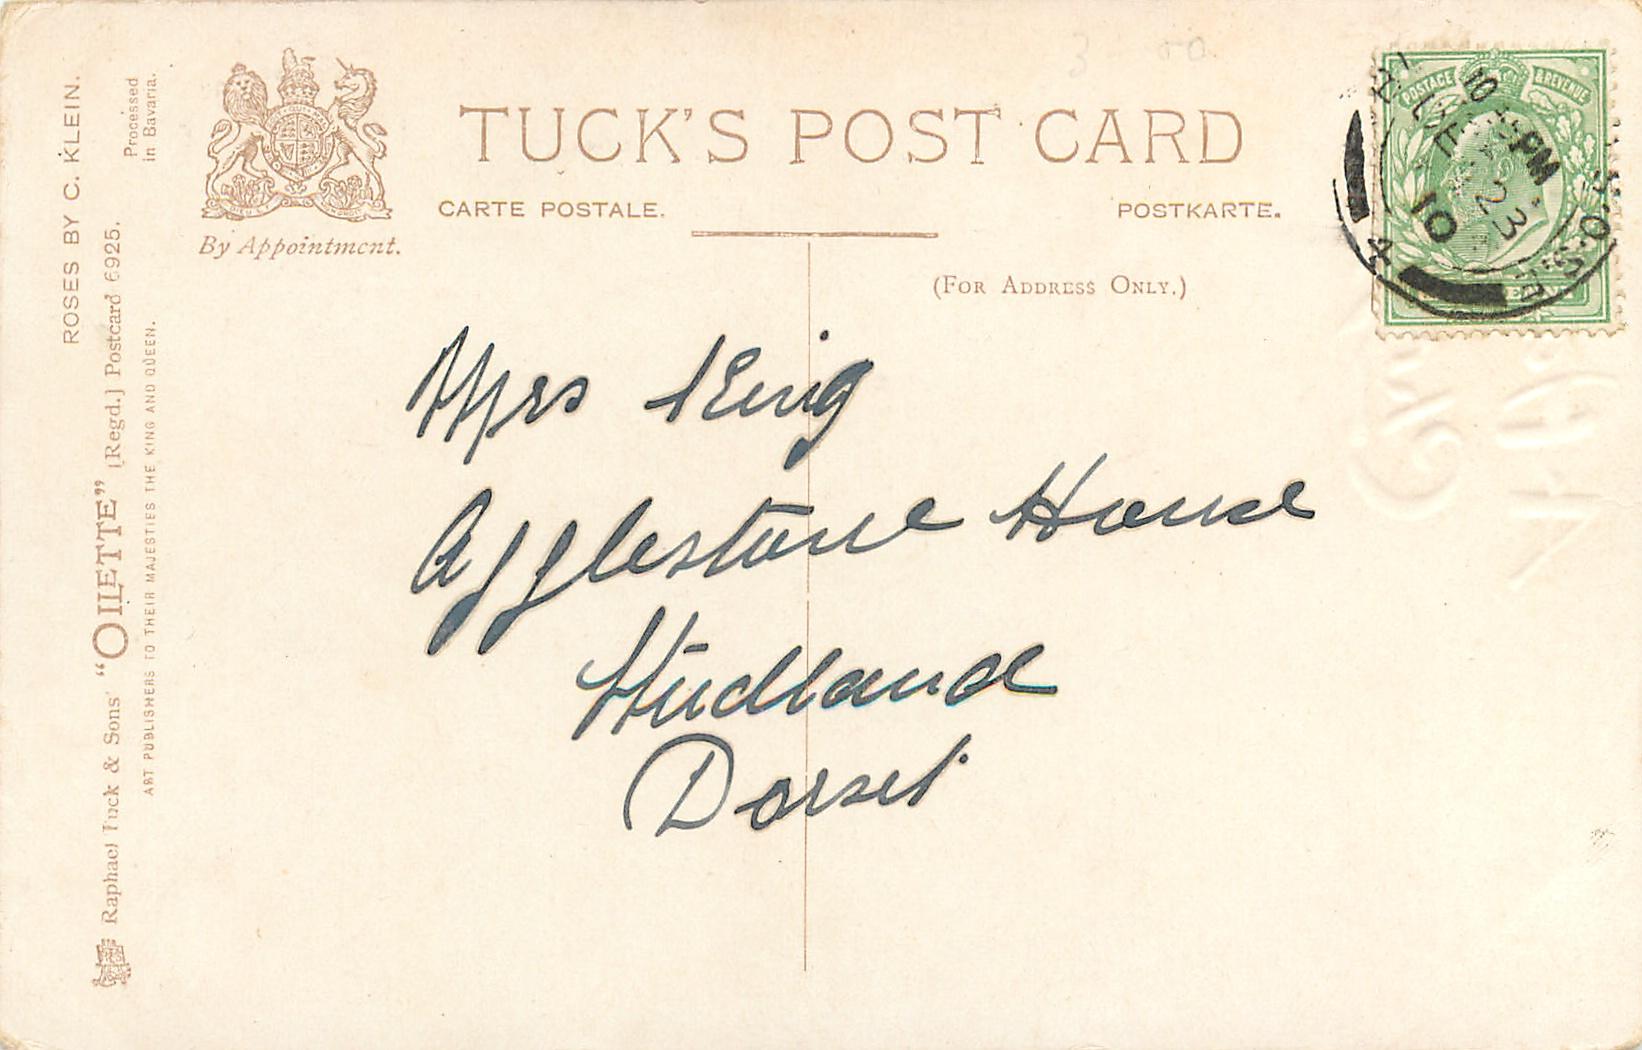 TUCK'S POST CARD
CARTE POSTALE.
POSTKARTE.
By Appointment.
(FOR ADDRESS ONLY.)
Mrs King
Agglestone House
Studland
Dorset
ROSES BY C. KLEIN.
Processed
in Bavaria.
Raphael Tuck & Sons' "OILETTE" [Regd.] Postcard 6925.
ART PUBLISHERS TO THEIR MAJESTIES THE KING AND QUEEN.
POSTAGE & REVENUE
PM
23
10
3 - 50